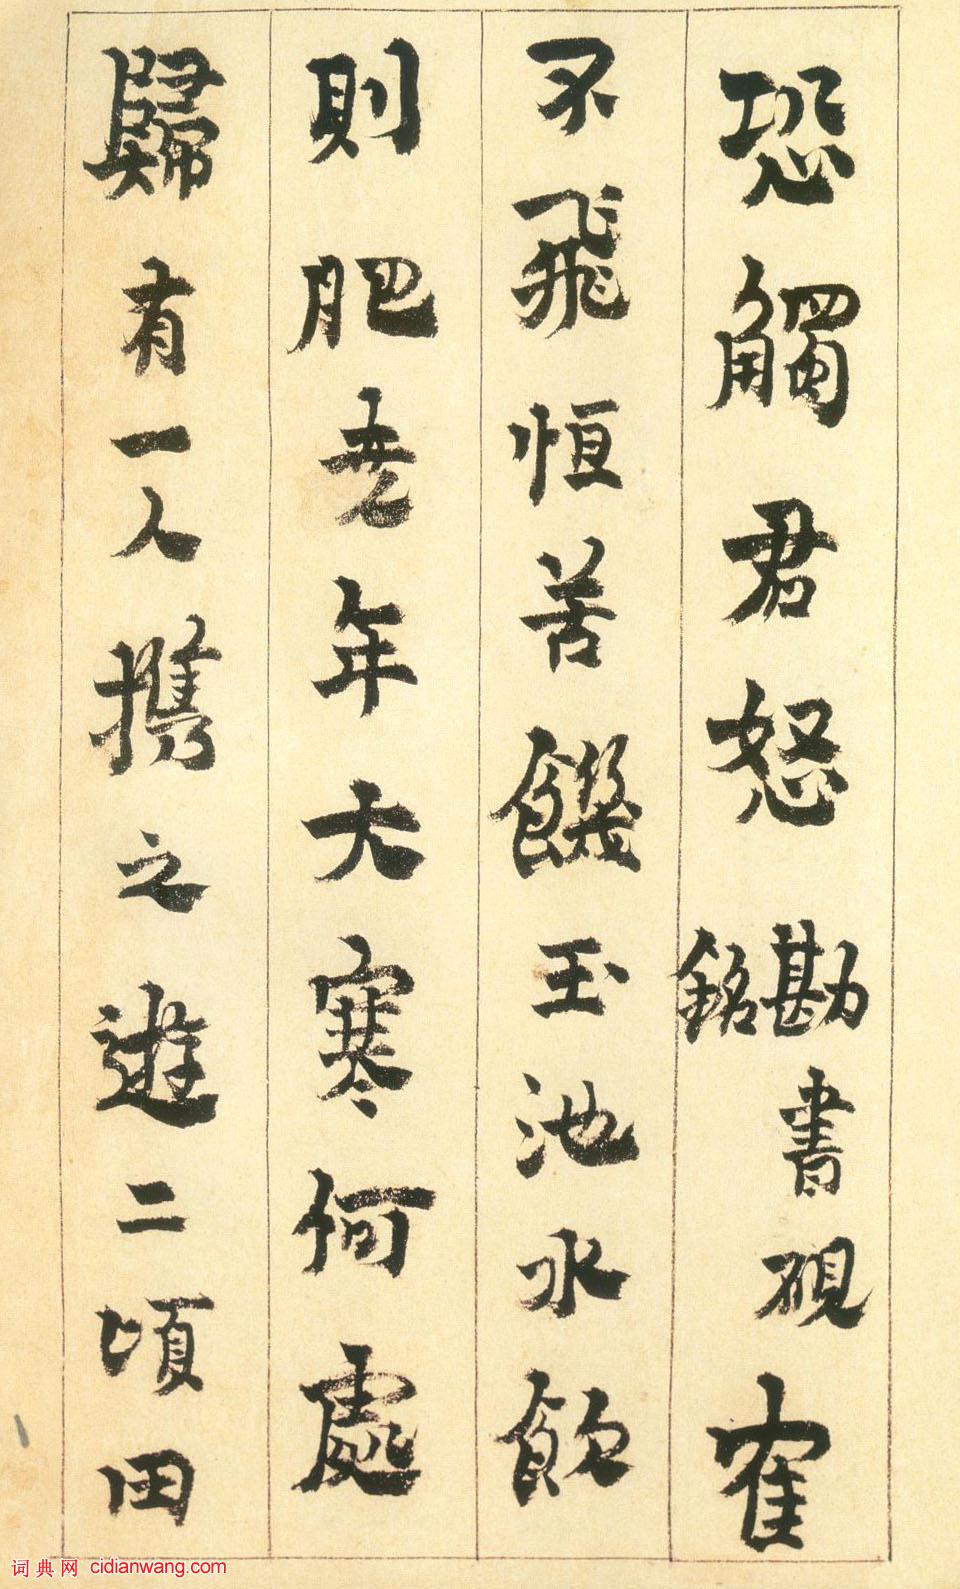 恐觸君怒勘書硯銘寉
不飛恒苦饑玉池水飲
則肥吾年大寒何處
歸有一人攜之遊二頃田
词典网 cidianwang.com